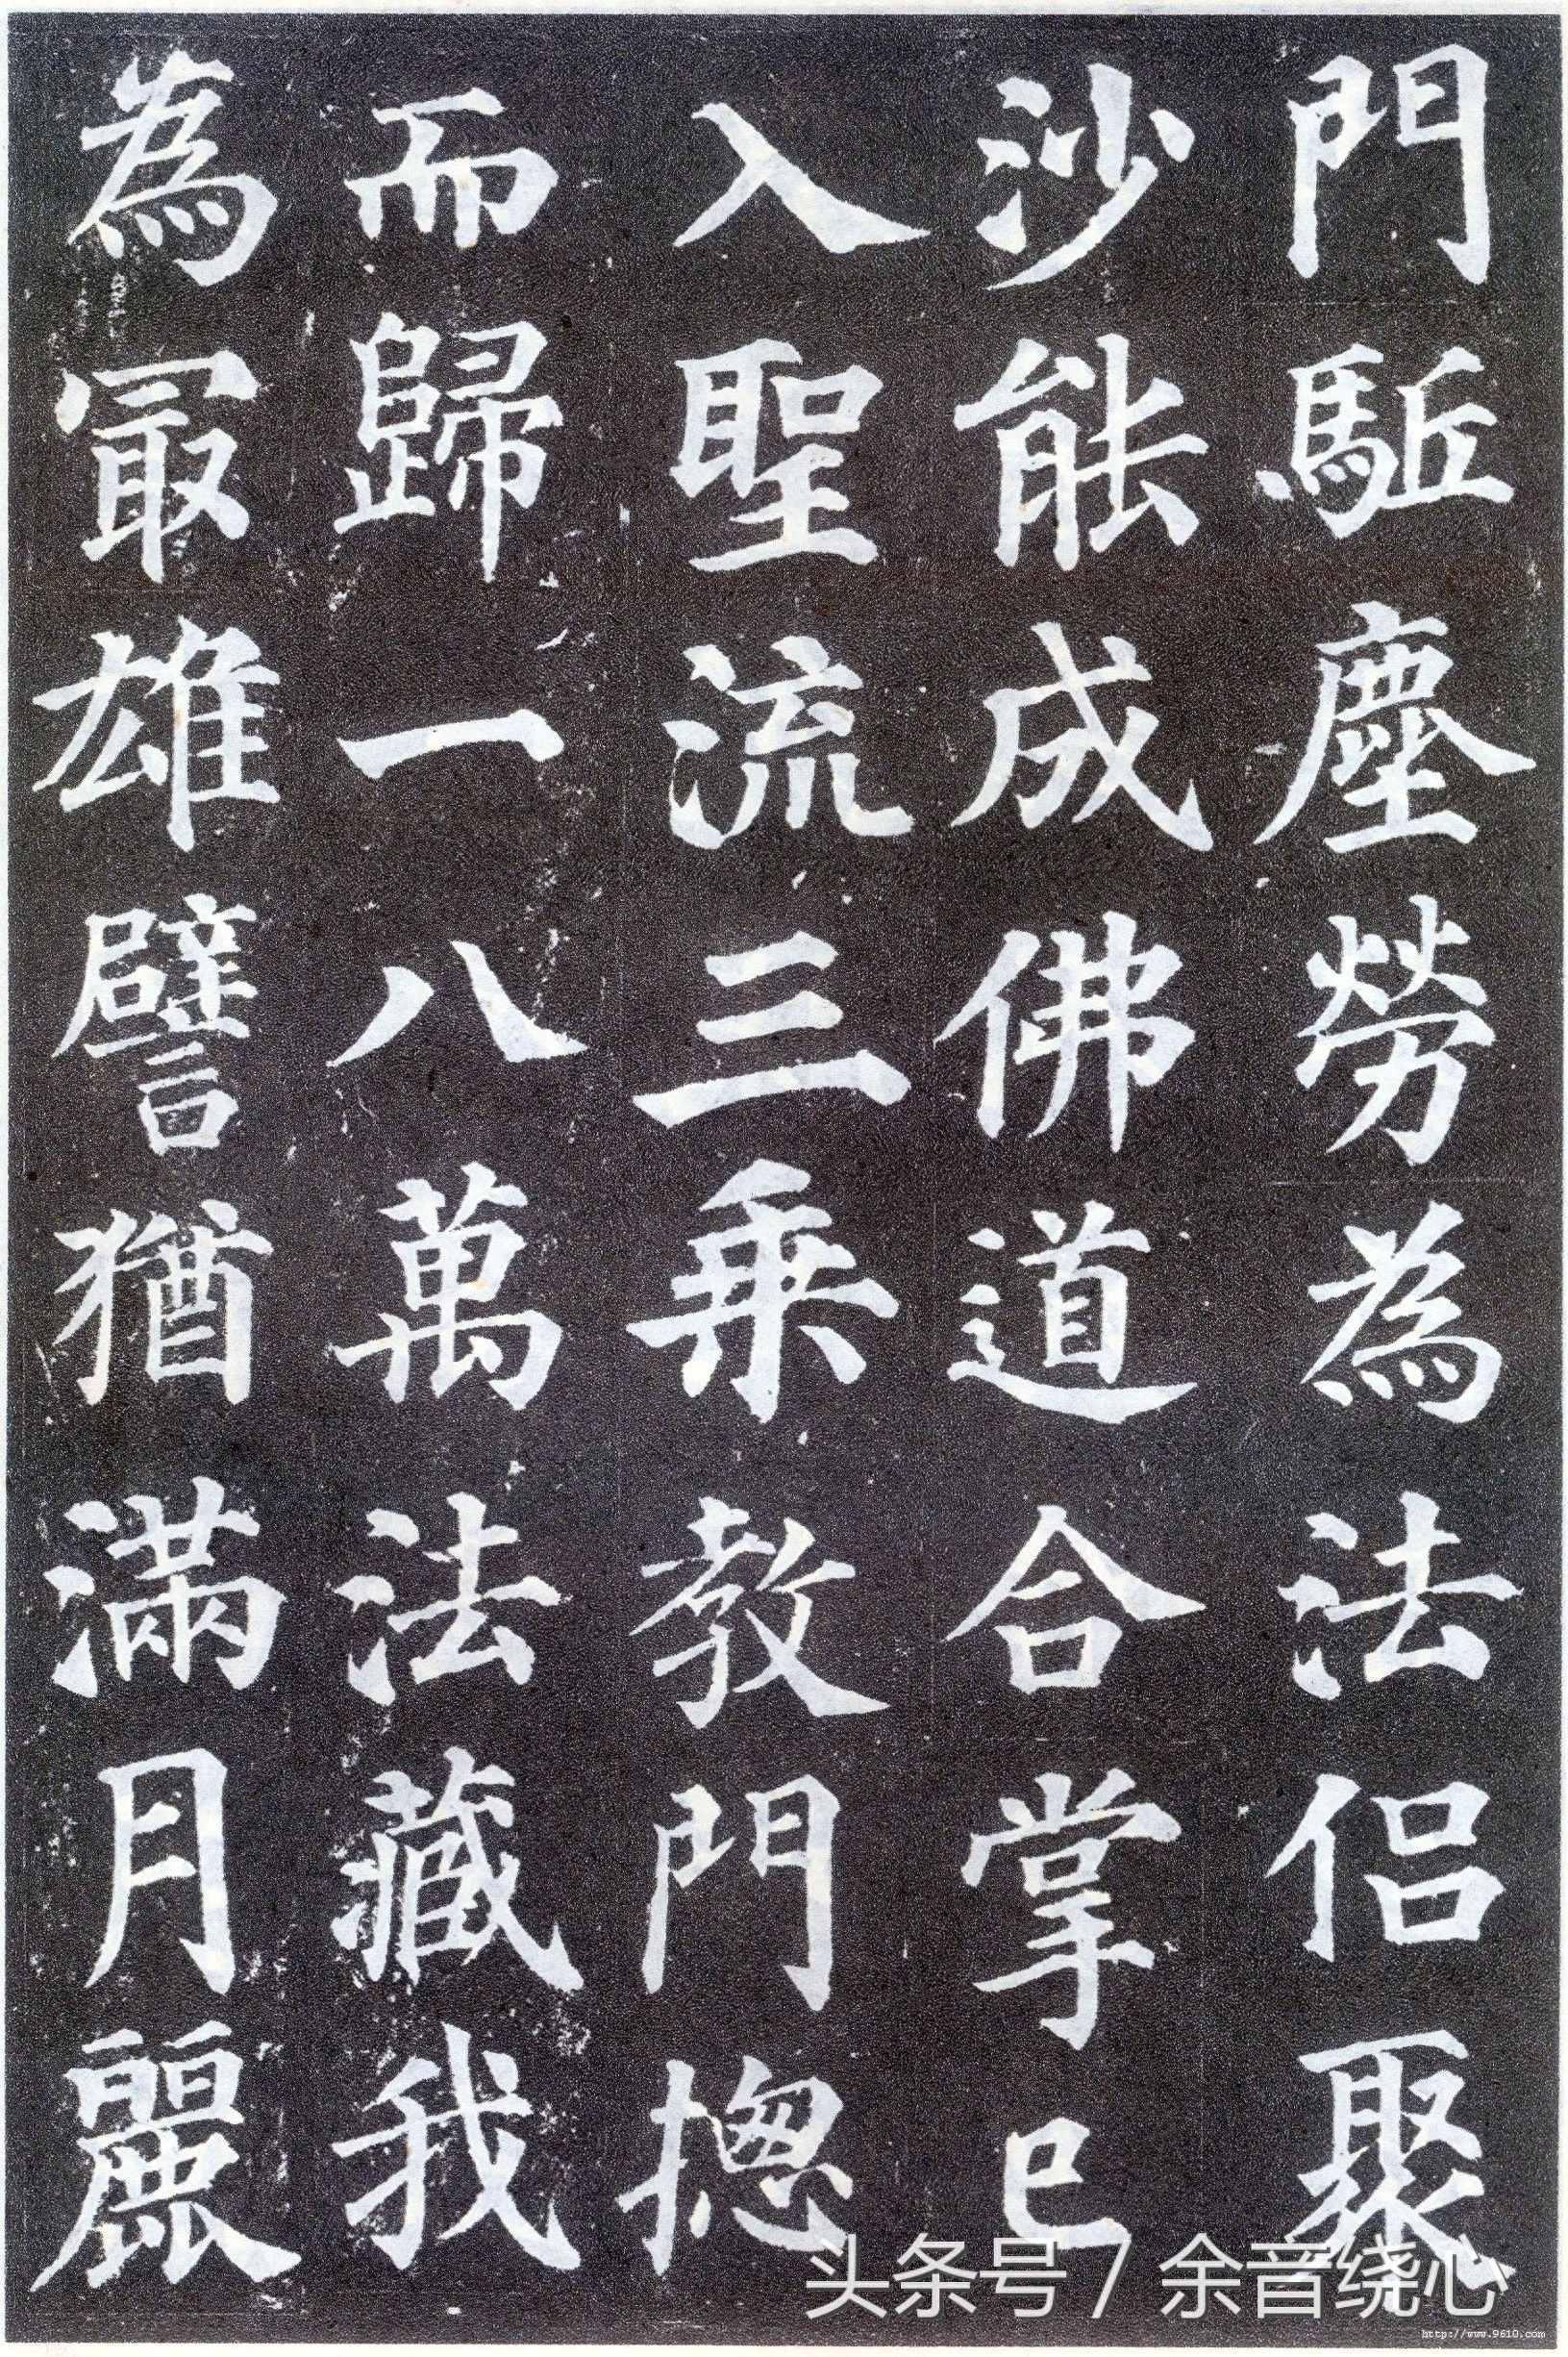 門駈塵勞為法侶聚
沙能成佛道合掌已
入聖流三乗教門揔
而歸一八萬法藏我
為冣雄譬猶滿月麗
头条号 / 余音绕心
http://www.9610.com